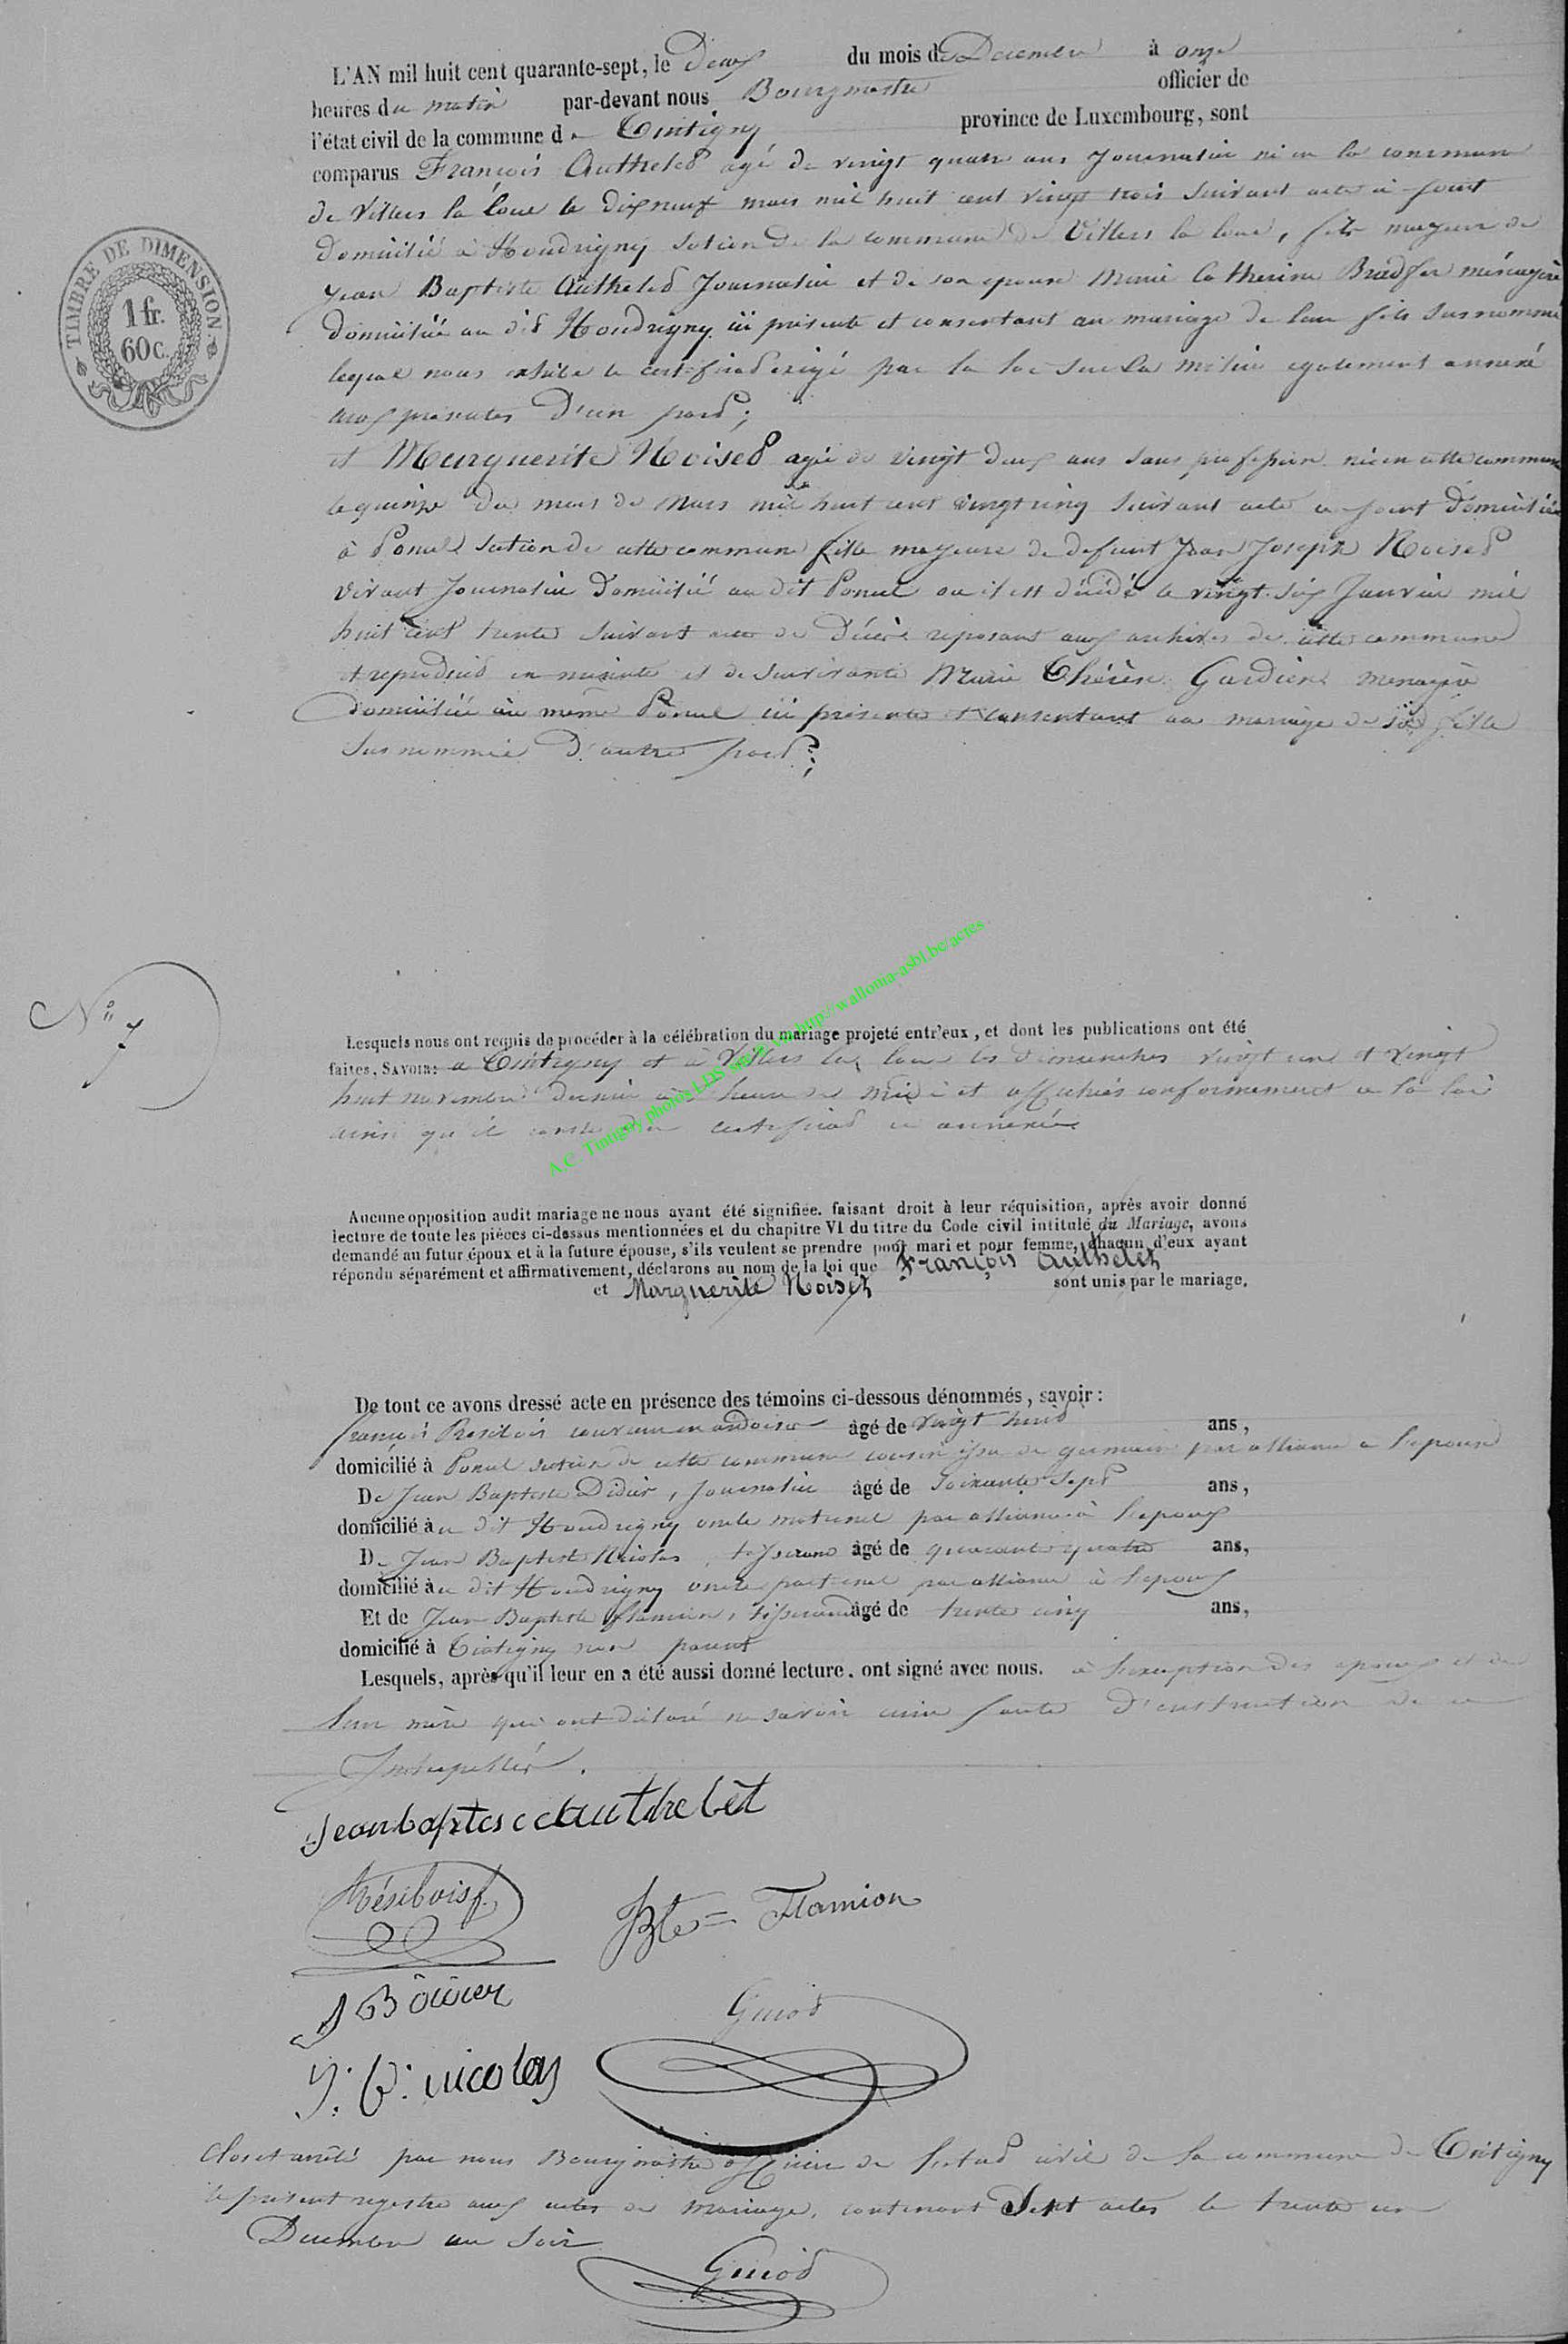 L'AN mil huit cent quarante-sept, le Deux du mois de Decembre à onze
heures du matin par-devant nous Bourgmestre officier de
l'état civil de la commune de Tintigny province de Luxembourg, sont
comparus François Authelet agé de vingt quatre ans Journalier né en la commune
de Villers la loue le dix neuf mars mil huit cent vingt trois suivant acte ci-joint
Domicilié à Houdrigny section de la commune de Villers la loue, fils majeur de
Jean Baptiste Authelet Journalier et de son epouse Marie Catherine ménagère
domiciliés au dit Houdrigny ici présents et consentant au mariage de leur fils susnommé
lequel nous exhibe le certificat exigé par la loi sur la milice egalement annexé
aux présentes D'une part;
et Marguerite Noiset agée de vingt deux ans sans profession née en cette commune
le quinze du mois de Mars mil huit cent vingt cinq suivant acte ci-joint Domiciliée
à Ponul section de cette commune fille majeure de defunt Jean Joseph Noiset
vivant Journalier Domicilié au dit Ponul où il est décédé le vingt six Janvier mil
huit cent trente suivant acte de Décès reposant aux archives de cette commune
et reproduit en minute et de survivante Marie Thérèse Gardien menagère
domiciliée au même Ponul ici présente et consentant au mariage de sa fille
Susnommée D'autre part;
TIMBRE DE DIMENSION
1 fr.
60 c.
N° 7
Lesquels nous ont requis de procéder à la célébration du mariage projeté entr'eux, et dont les publications ont été
faites, SAVOIR: à Tintigny et à Villers la loue les dimanches vingt un et vingt
huit novembre dernier à heure de midi et affichés conformement à la loi
ainsi qu'il conste certificat ci annexé
A.C. Tintigny photos LDS http://wallonia-asbl.be/actes
Aucune opposition audit mariage ne nous ayant été signifiée. faisant droit à leur réquisition, après avoir donné
lecture de toute les pièces ci-dessus mentionnées et du chapitre VI du titre du Code civil intitulé du Mariage, avons
demandé au futur époux et à la future épouse, s'ils veulent se prendre pour mari et pour femme, chacun d'eux ayant
répondu séparément et affirmativement, déclarons au nom de la loi que François Authelet
et Marguerite Noiset sont unis par le mariage.
De tout ce avons dressé acte en présence des témoins ci-dessous dénommés, savoir:
François couvreur en ardoises âgé de vingt huit ans,
domicilié à Ponul section de cette commune cousin issu de germain par alliance à l'epouse
De Jean Baptiste Didier, Journalier âgé de Soixante Sept ans,
domicilié au dit Houdrigny oncle maternel par alliance à l'epoux
De Jean Baptiste Nicolas, tisserand âgé de quarante quatre ans,
domicilié au dit Houdrigny oncle paternel par alliance à l'epoux
Et de Jean Baptiste Flamion, tisserand âgé de trente cinq ans,
domicilié à Tintigny non parent
Lesquels, après qu'il leur en a été aussi donné lecture. ont signé avec nous. à l'exception des epoux et de
leur mère qui ont déclaré ne savoir ecrire faute D'instruction de ce
Interpellés.
Jean baptes Authelet
JBte = Flamion
Guiot
J. B. nicolas
Clos et arrêté par nous Bourgmestre officier de l'etat civil de la commune de Tintigny
le présent registre aux actes de mariage, contenant Sept actes le trente un
Decembre au Soir
Guiot